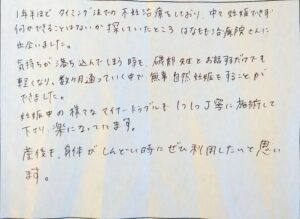 1年半ほどタイミング法での不妊治療をしており、中々妊娠できず
何かできることはないか探していたところはなもも治療院さんに
出会いました。
気持ちが落ち込んでしまう時も、磯部先生とお話するだけでも
軽くなり、数ヶ月通っていく中で無事自然妊娠をすることが
できました。
妊娠中の様々なマイナートラブルも1つ1つ丁寧に施術して
下さり、楽になってます。
産後も、身体がしんどい時にぜひ利用したいと思い
ます。